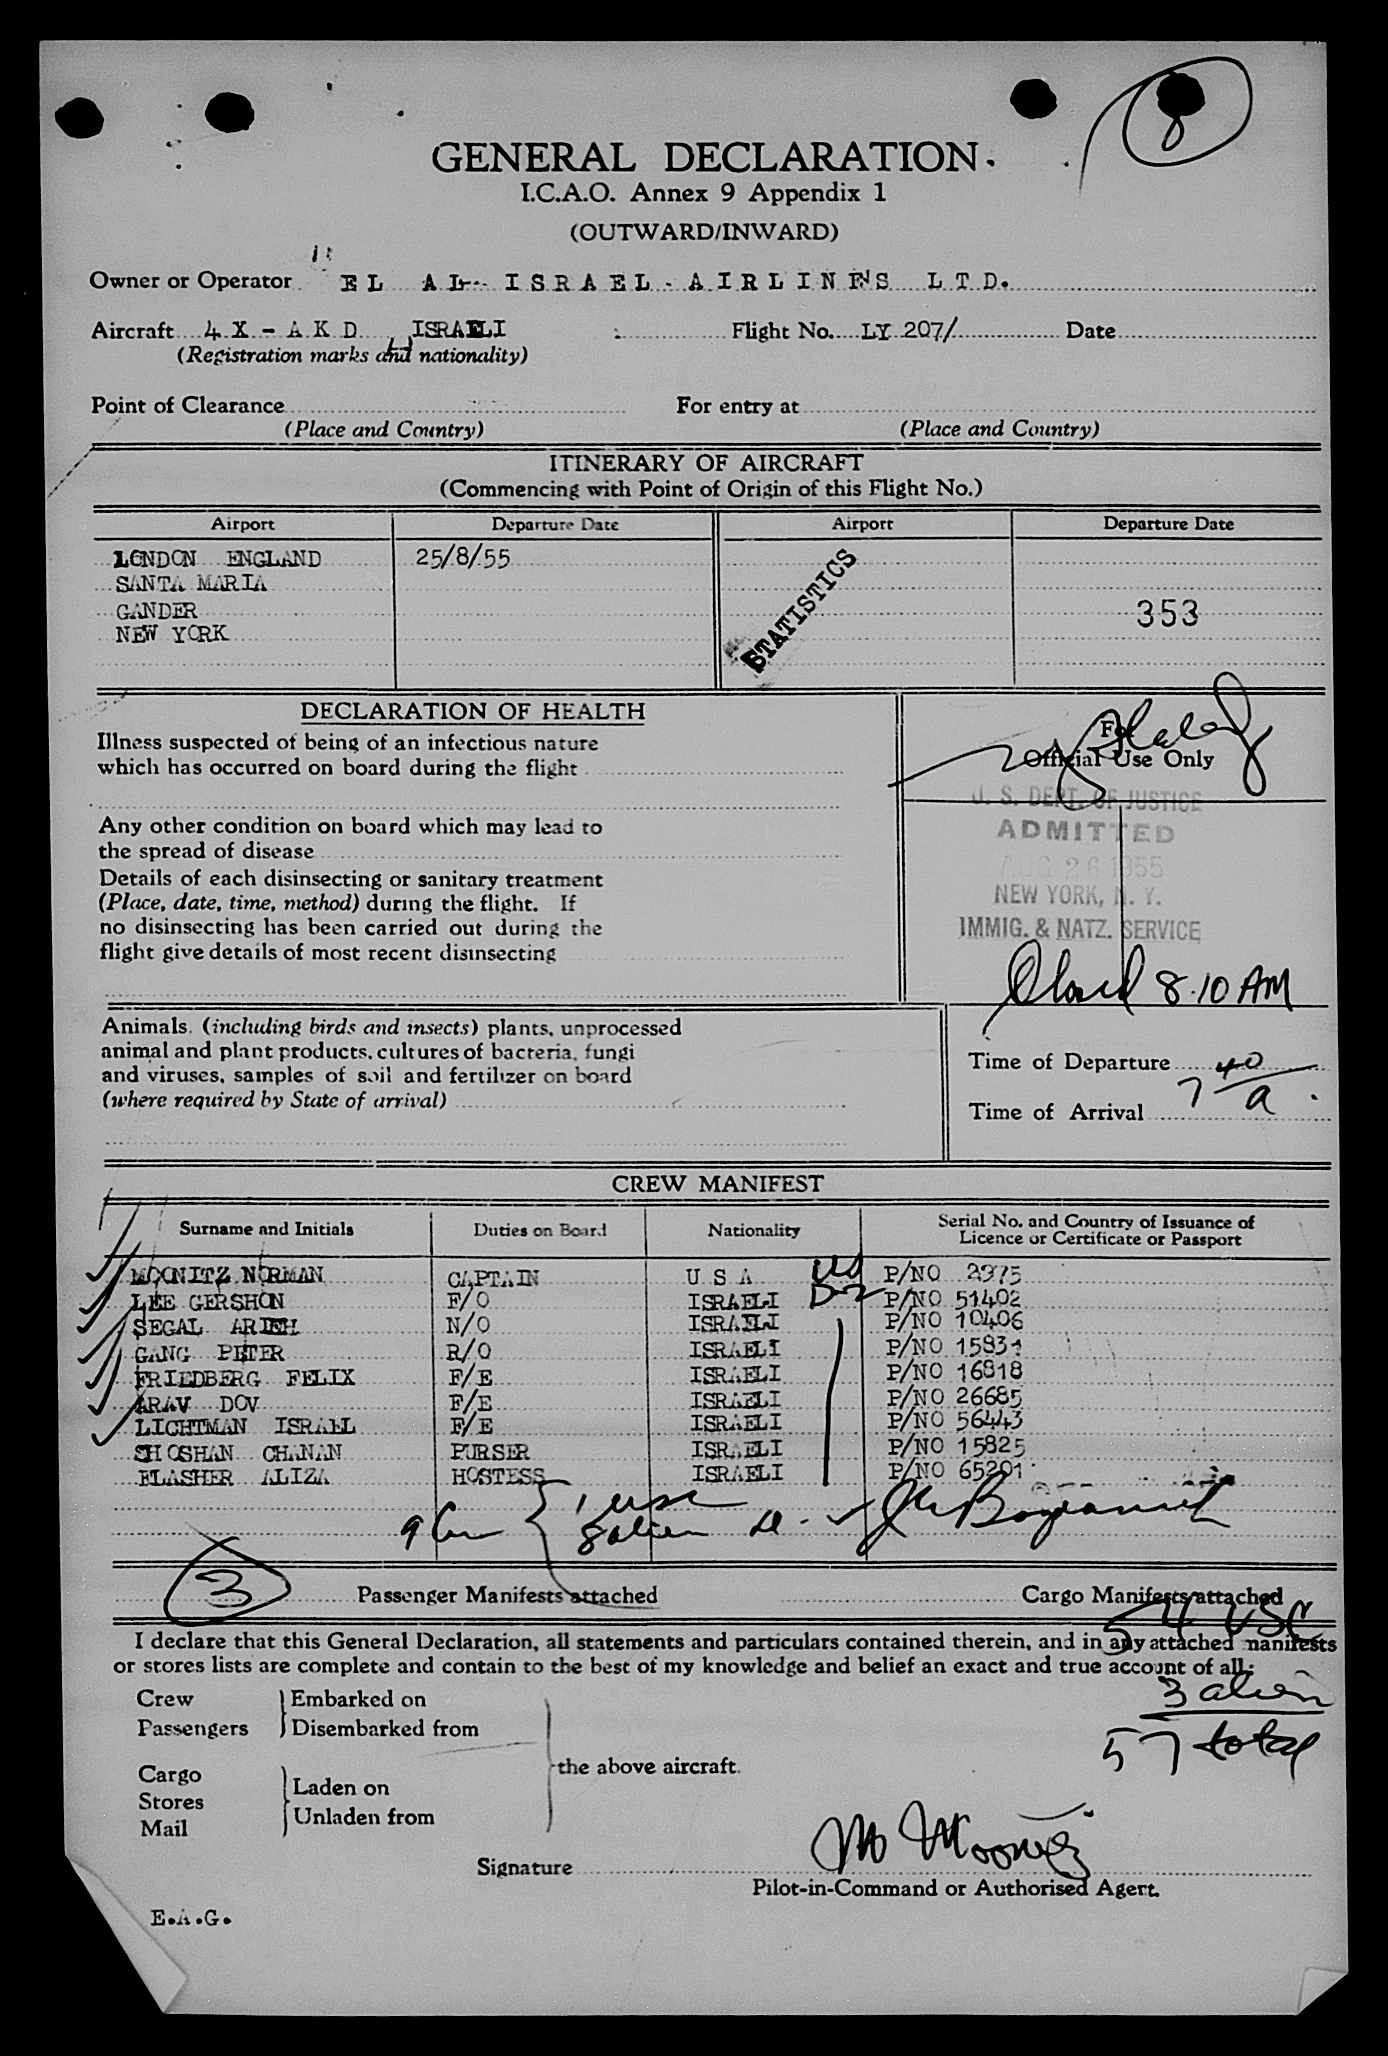 8
GENERAL DECLARATION.
I.C.A.O. Annex 9 Appendix 1
(OUTWARD/INWARD)
Owner or Operator EL AL ISRAEL AIRLINES LTD.
Aircraft 4X-AKD ISRAELI Flight No. LY 207/ Date
(Registration marks and nationality)
Point of Clearance For entry at
(Place and Country) (Place and Country)
ITINERARY OF AIRCRAFT
(Commencing with Point of Origin of this Flight No.)
Airport Departure Date Airport Departure Date
LONDON ENGLAND 25/8/55
SANTA MARIA
GANDER
NEW YORK
STATISTICS
353
DECLARATION OF HEALTH
Illness suspected of being of an infectious nature
which has occurred on board during the flight
Any other condition on board which may lead to
the spread of disease
Details of each disinsecting or sanitary treatment
(Place, date, time, method) during the flight. If
no disinsecting has been carried out during the
flight give details of most recent disinsecting
For
Official Use Only
U. S. DEPT. OF JUSTICE
ADMITTED
AUG 26 1955
NEW YORK, N. Y.
IMMIG. & NATZ. SERVICE
Closed 8.10 AM
Animals, (including birds and insects) plants, unprocessed
animal and plant products, cultures of bacteria, fungi
and viruses, samples of soil and fertilizer on board
(where required by State of arrival)
Time of Departure
Time of Arrival 7 40 a.
CREW MANIFEST
Surname and Initials Duties on Board Nationality Serial No. and Country of Issuance of
Licence or Certificate or Passport
MOONITZ NORMAN CAPTAIN U S A P/NO 2975
LEE GERSHON F/O ISRAELI P/NO 51402
SEGAL ARIEH N/O ISRAELI P/NO 10406
GANG PETER R/O ISRAELI P/NO 15831
FRIEDBERG FELIX F/E ISRAELI P/NO 16818
ARAV DOV F/E ISRAELI P/NO 26685
LICHTMAN ISRAEL F/E ISRAELI P/NO 56443
SHOSHAN CHANAN PURSER ISRAELI P/NO 15825
FLASHER ALIZA HOSTESS ISRAELI P/NO 65201
1 usc
8 alien
3 Passenger Manifests attached Cargo Manifests attached
54 USC
I declare that this General Declaration, all statements and particulars contained therein, and in any attached manifests
or stores lists are complete and contain to the best of my knowledge and belief an exact and true account of all:
3 alien
57 total
Crew Embarked on
Passengers Disembarked from
the above aircraft.
Cargo
Stores Laden on
Mail Unladen from
Signature M Moonitz
Pilot-in-Command or Authorised Agent.
E.A.G.